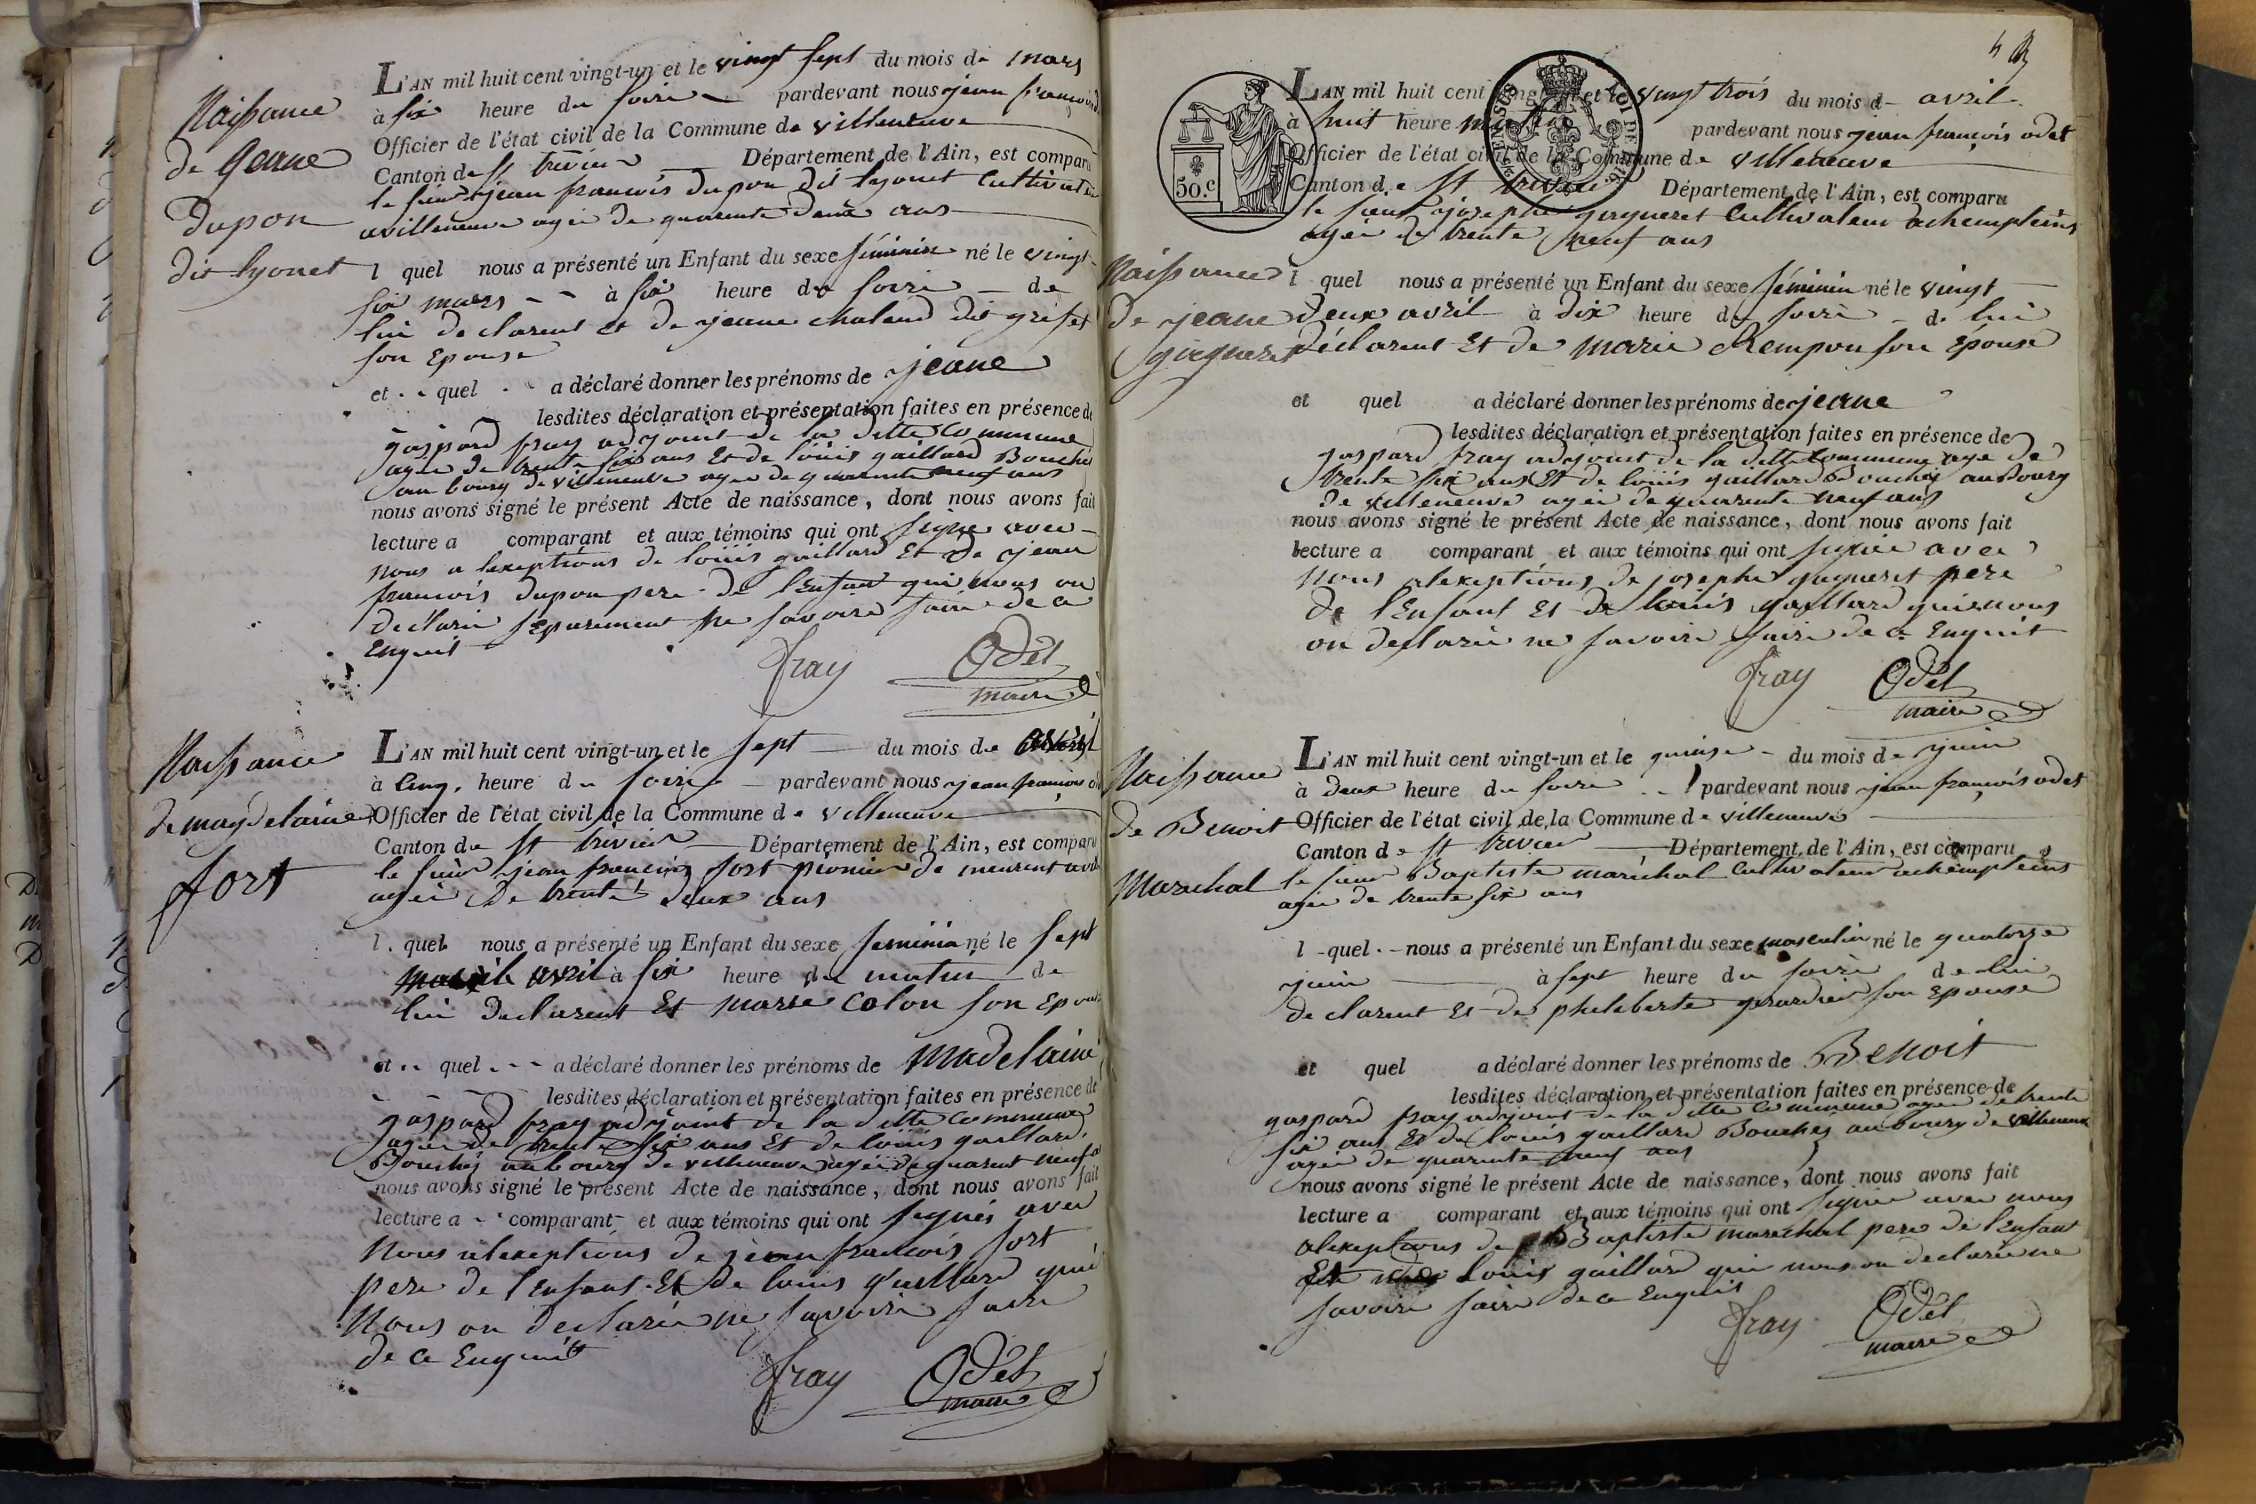 Naissance
de Jeane
Dupon
dit lyonet
L'AN mil huit cent vingt-un et le vingt sept du mois de mars
à six heure du soire pardevant nous jean francois
Officier de l'état civil de la Commune de villeneuve
Canton de St trivier Département de l'Ain, est comparu
le sieur jean francois dupon dit lyonet Cultivateur
a villeneuve agée de quarente deux ans
l quel nous a présenté un Enfant du sexe féminin né le vingt
six mars à six heure du soire de
lui declarent et de jeanne chaland dit griset
son Epouse
et quel a déclaré donner les prénoms de jeane
lesdites déclaration et présentation faites en présence de
gaspard fray adjoint de la ditte Commune
agée de trente six ans Et de louis gaillard Bouché
au bourg de villeneuve agée de quarente neuf ans
nous avons signé le présent Acte de naissance, dont nous avons fait
lecture a comparant et aux témoins qui ont signé avec
nous a lexeptions de louis gaillard Et de jean
francois dupon pere de l'Enfant qui nous on
declarée séparement ne savoire faire de ce
Enquit
fray Odet
maire
Naissance
de magdelaine
fort
L'AN mil huit cent vingt-un et le sept du mois de avril
à Cinq heure du soire pardevant nous jean francois
Officier de l'état civil de la Commune de villeneuve
Canton de St trivier Département de l'Ain, est comparu
le sieur jean francois fort pionnier de meurent
agée De trente deux ans
l quel nous a présenté un Enfant du sexe feminin né le sept
avril à six heure du matin de
lui declarent Et marie Colon son Epouse
et quel a déclaré donner les prénoms de Madelaine
lesdites déclaration et présentation faites en présence de
gaspard fray adjoint de la ditte Commune
agée de trente six ans Et de louis gaillard
Bouché au bourg de villeneuve agée de quarent neuf
nous avons signé le présent Acte de naissance, dont nous avons fait
lecture a comparant et aux témoins qui ont signés avec
nous alexeptions de jean francois fort
pere de l'Enfant Et de louis gaillard qui
nous on declarée ne savoire faire
de ce Enquit
fray Odet
maire
4
50.c
LOI DE 1816
L'AN mil huit cent vingt-un et le vingt trois du mois d avril
à huit heure matin pardevant nous jean françois odet
Officier de l'état civil de la Commune de villeneuve
Canton de St trivier Département de l'Ain, est comparu
le sieur josephe gigneret Cultivateur achampteins
agée de trente neuf ans
Naissance
de jeane
gigneret
l quel nous a présenté un Enfant du sexe féminin né le vingt
deux avril à dix heure du soire de lui
déclarent Et de marie Rempon son Épouse
et quel a déclaré donner les prénoms de jeane
lesdites déclaration et présentation faites en présence de
gaspard fray adjoint de la ditte Commune agé de
trente six ans Et de louis gaillard Bouché au Bourg
de villeneuve agée de quarente neuf ans
nous avons signé le présent Acte de naissance, dont nous avons fait
lecture a comparant et aux témoins qui ont signée avec
nous alexeptions de josephe gigneret pere
de l'Enfant Et de louis gaillard qui nous
on declarée ne savoire faire de ce Enquit
fray Odet
maire
Naissance
de Benoit
Maréchal
L'AN mil huit cent vingt-un et le quinse du mois de juin
à deux heure du soire pardevant nous jean françois odet
Officier de l'état civil de la Commune de villeneuve
Canton de St trivier Département de l'Ain, est comparu
le sieur Baptiste maréchal Cultivateur achampteins
agée de trente six ans
l quel nous a présenté un Enfant du sexe masculin né le quatorze
juin à sept heure du soire de lui
declarent Et de pheleberte girardin son Epouse
et quel a déclaré donner les prénoms de Benoit
lesdites déclaration et présentation faites en présence de
gaspard fray adjoint de la ditte Commune agée de trente
six ans Et de louis gaillard Bouché au bourg de villeneuve
agée de quarente neuf ans
nous avons signé le présent Acte de naissance, dont nous avons fait
lecture a comparant et aux témoins qui ont signée avec nous
alexeptions de Baptiste maréchal pere de l'Enfant
Et louis gaillard qui nous on declarée ne
savoire faire de ce Enquis
fray Odet
maire